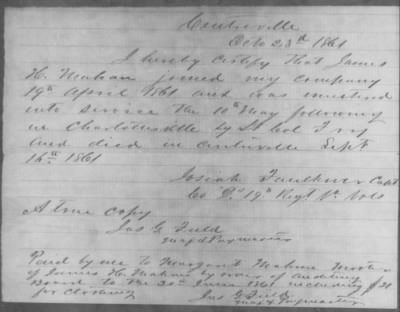 Centreville
Octo 23rd 1861
I hereby certify that James
H. Mahan joined my company
19th April 1861 and was mustered
into service the 10th May following
in Charlottesville by Lt Col
and died in Centreville Sept
16th 1861
Josiah Faulkner Capt
Co "D" 19th Regt Va Vols
A true copy
Jas G. Field
Maj & Paymaster
Paid by me to Margaret Mahan Mother
of James H. Mahan by order of auditing
Board to the 30th June 1861 including $21
for clothing
Jas G. Field
Maj & Paymaster